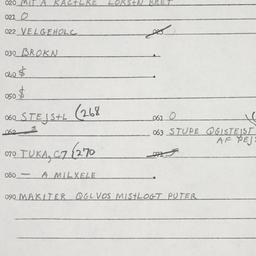 020 MIT A KAGTLRE LORSTN BRET
021 O
022 VELGEHOLC
030 BROKN
040 $
050 $
060 STEJSTL (268 061 O
062 063 STUPE QGISTEIST
AF PEJ
070 TUKA, C7 (270
080 — A MILXELE
090 MAKITER QGLVOS MISTLOGT PUTER